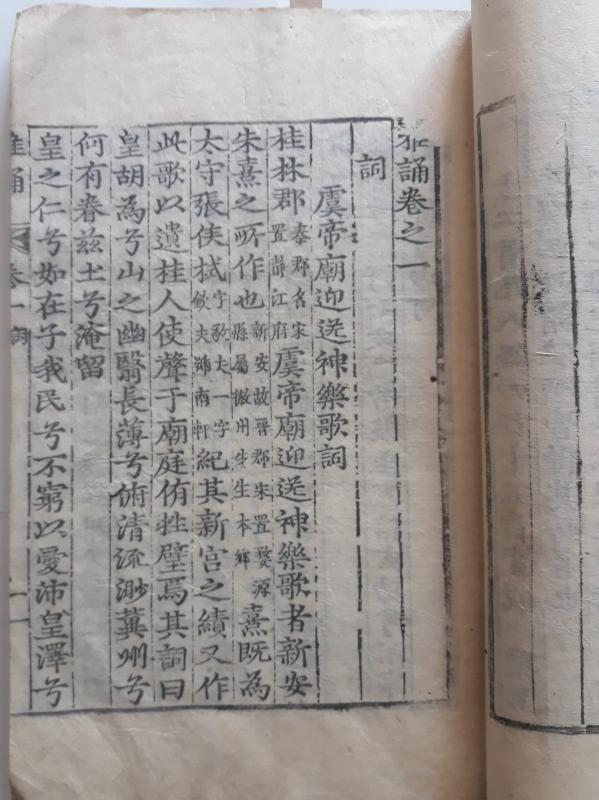 雅誦卷之一
詞
虞帝廟迎送神樂歌詞
桂林郡秦郡名宋置靜江府虞帝廟迎送神樂歌者新安
朱熹之所作也新安故晉郡朱置婺源縣屬徽州先生本鄉熹旣爲
太守張侯栻字敬夫一字欽夫號南軒紀其新宮之績又作
此歌以遺桂人使聲于廟庭侑牲璧焉其詞曰
皇胡爲兮山之幽翳長薄兮俯清流渺冀州兮
何有眷茲土兮淹留
皇之仁兮如在子我民兮不窮以愛沛皇澤兮
雅誦 卷一 詞 一